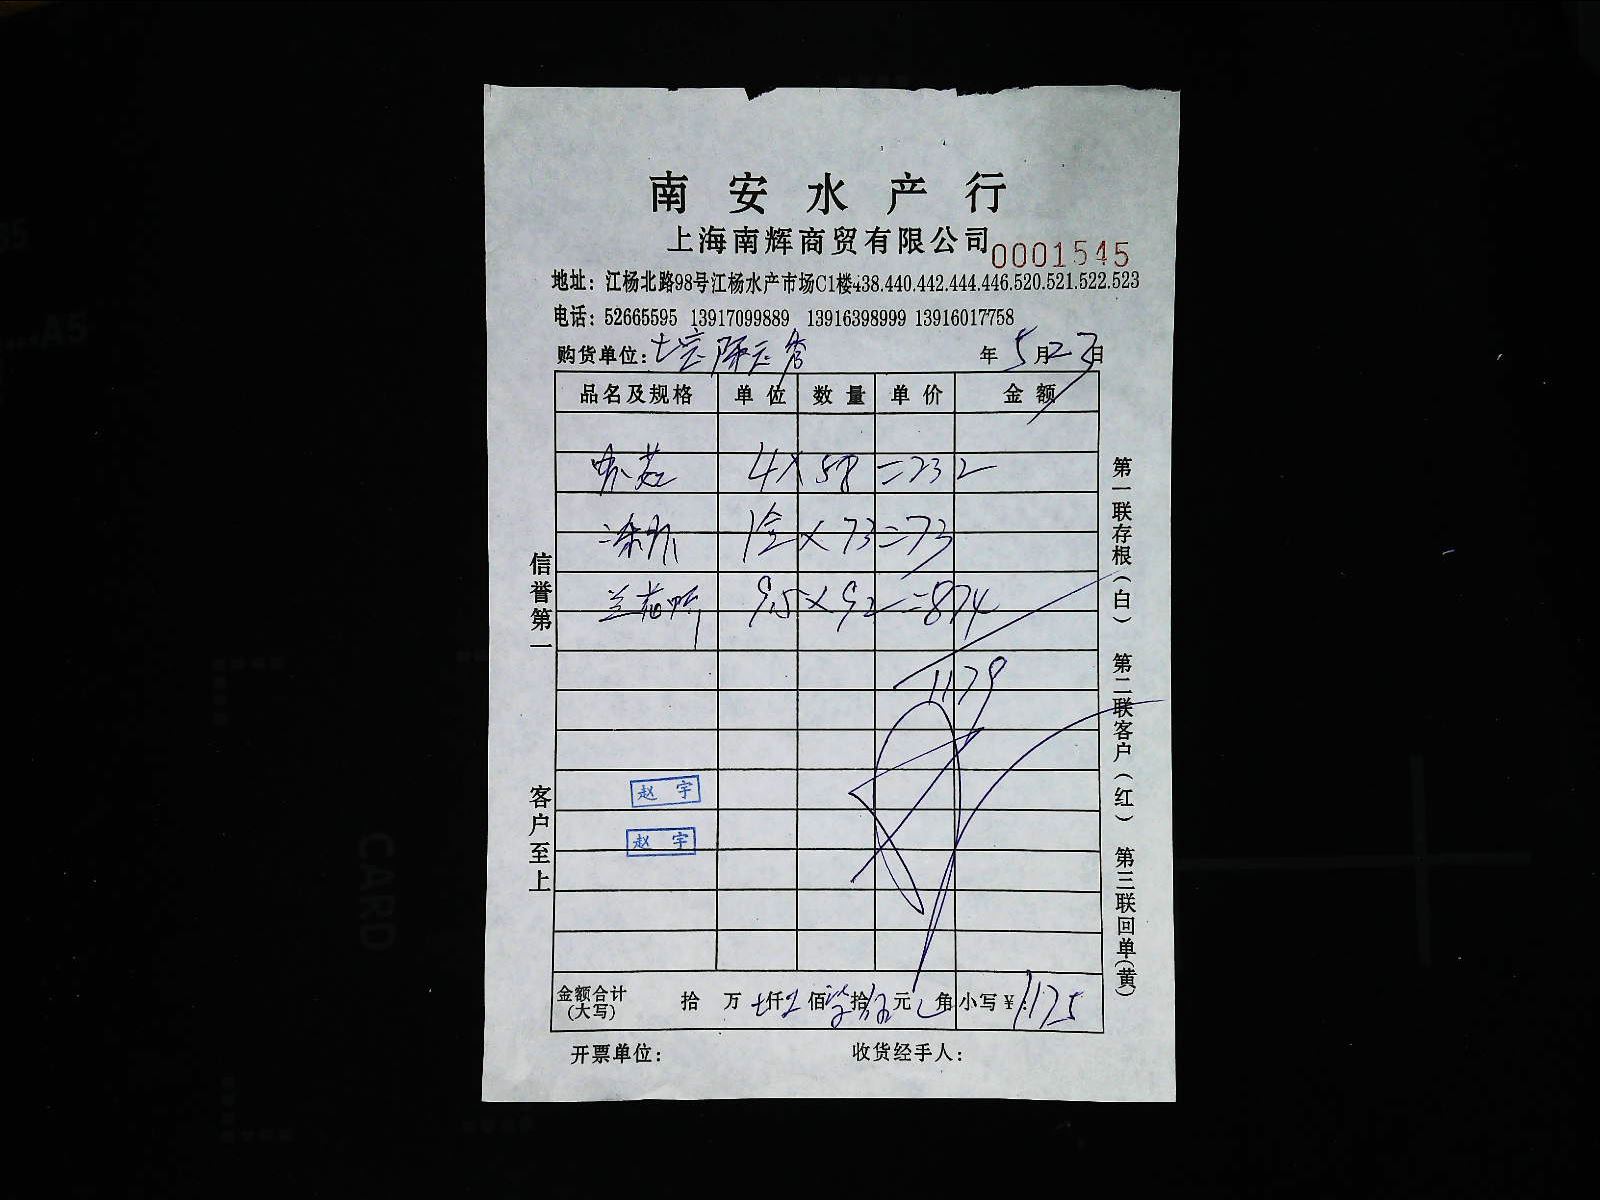 南安水产行
上海南辉商贸有限公司 0001545
地址：江杨北路98号江杨水产市场C1楼438.440.442.444.446.520.521.522.523
电话：52665595 13917099889 13916398999 13916017758
购货单位： 年5月23日
品名及规格 单位 数量 单价 金额
4×58=232
1盒×73=73
兰花 9.5×92=874
1179
赵宇
赵宇
金额合计(大写) 拾 万 仟 佰 拾 元 角 小写￥:1175
开票单位： 收货经手人：
信誉第一
客户至上
第一联存根(白) 第二联客户(红) 第三联回单(黄)